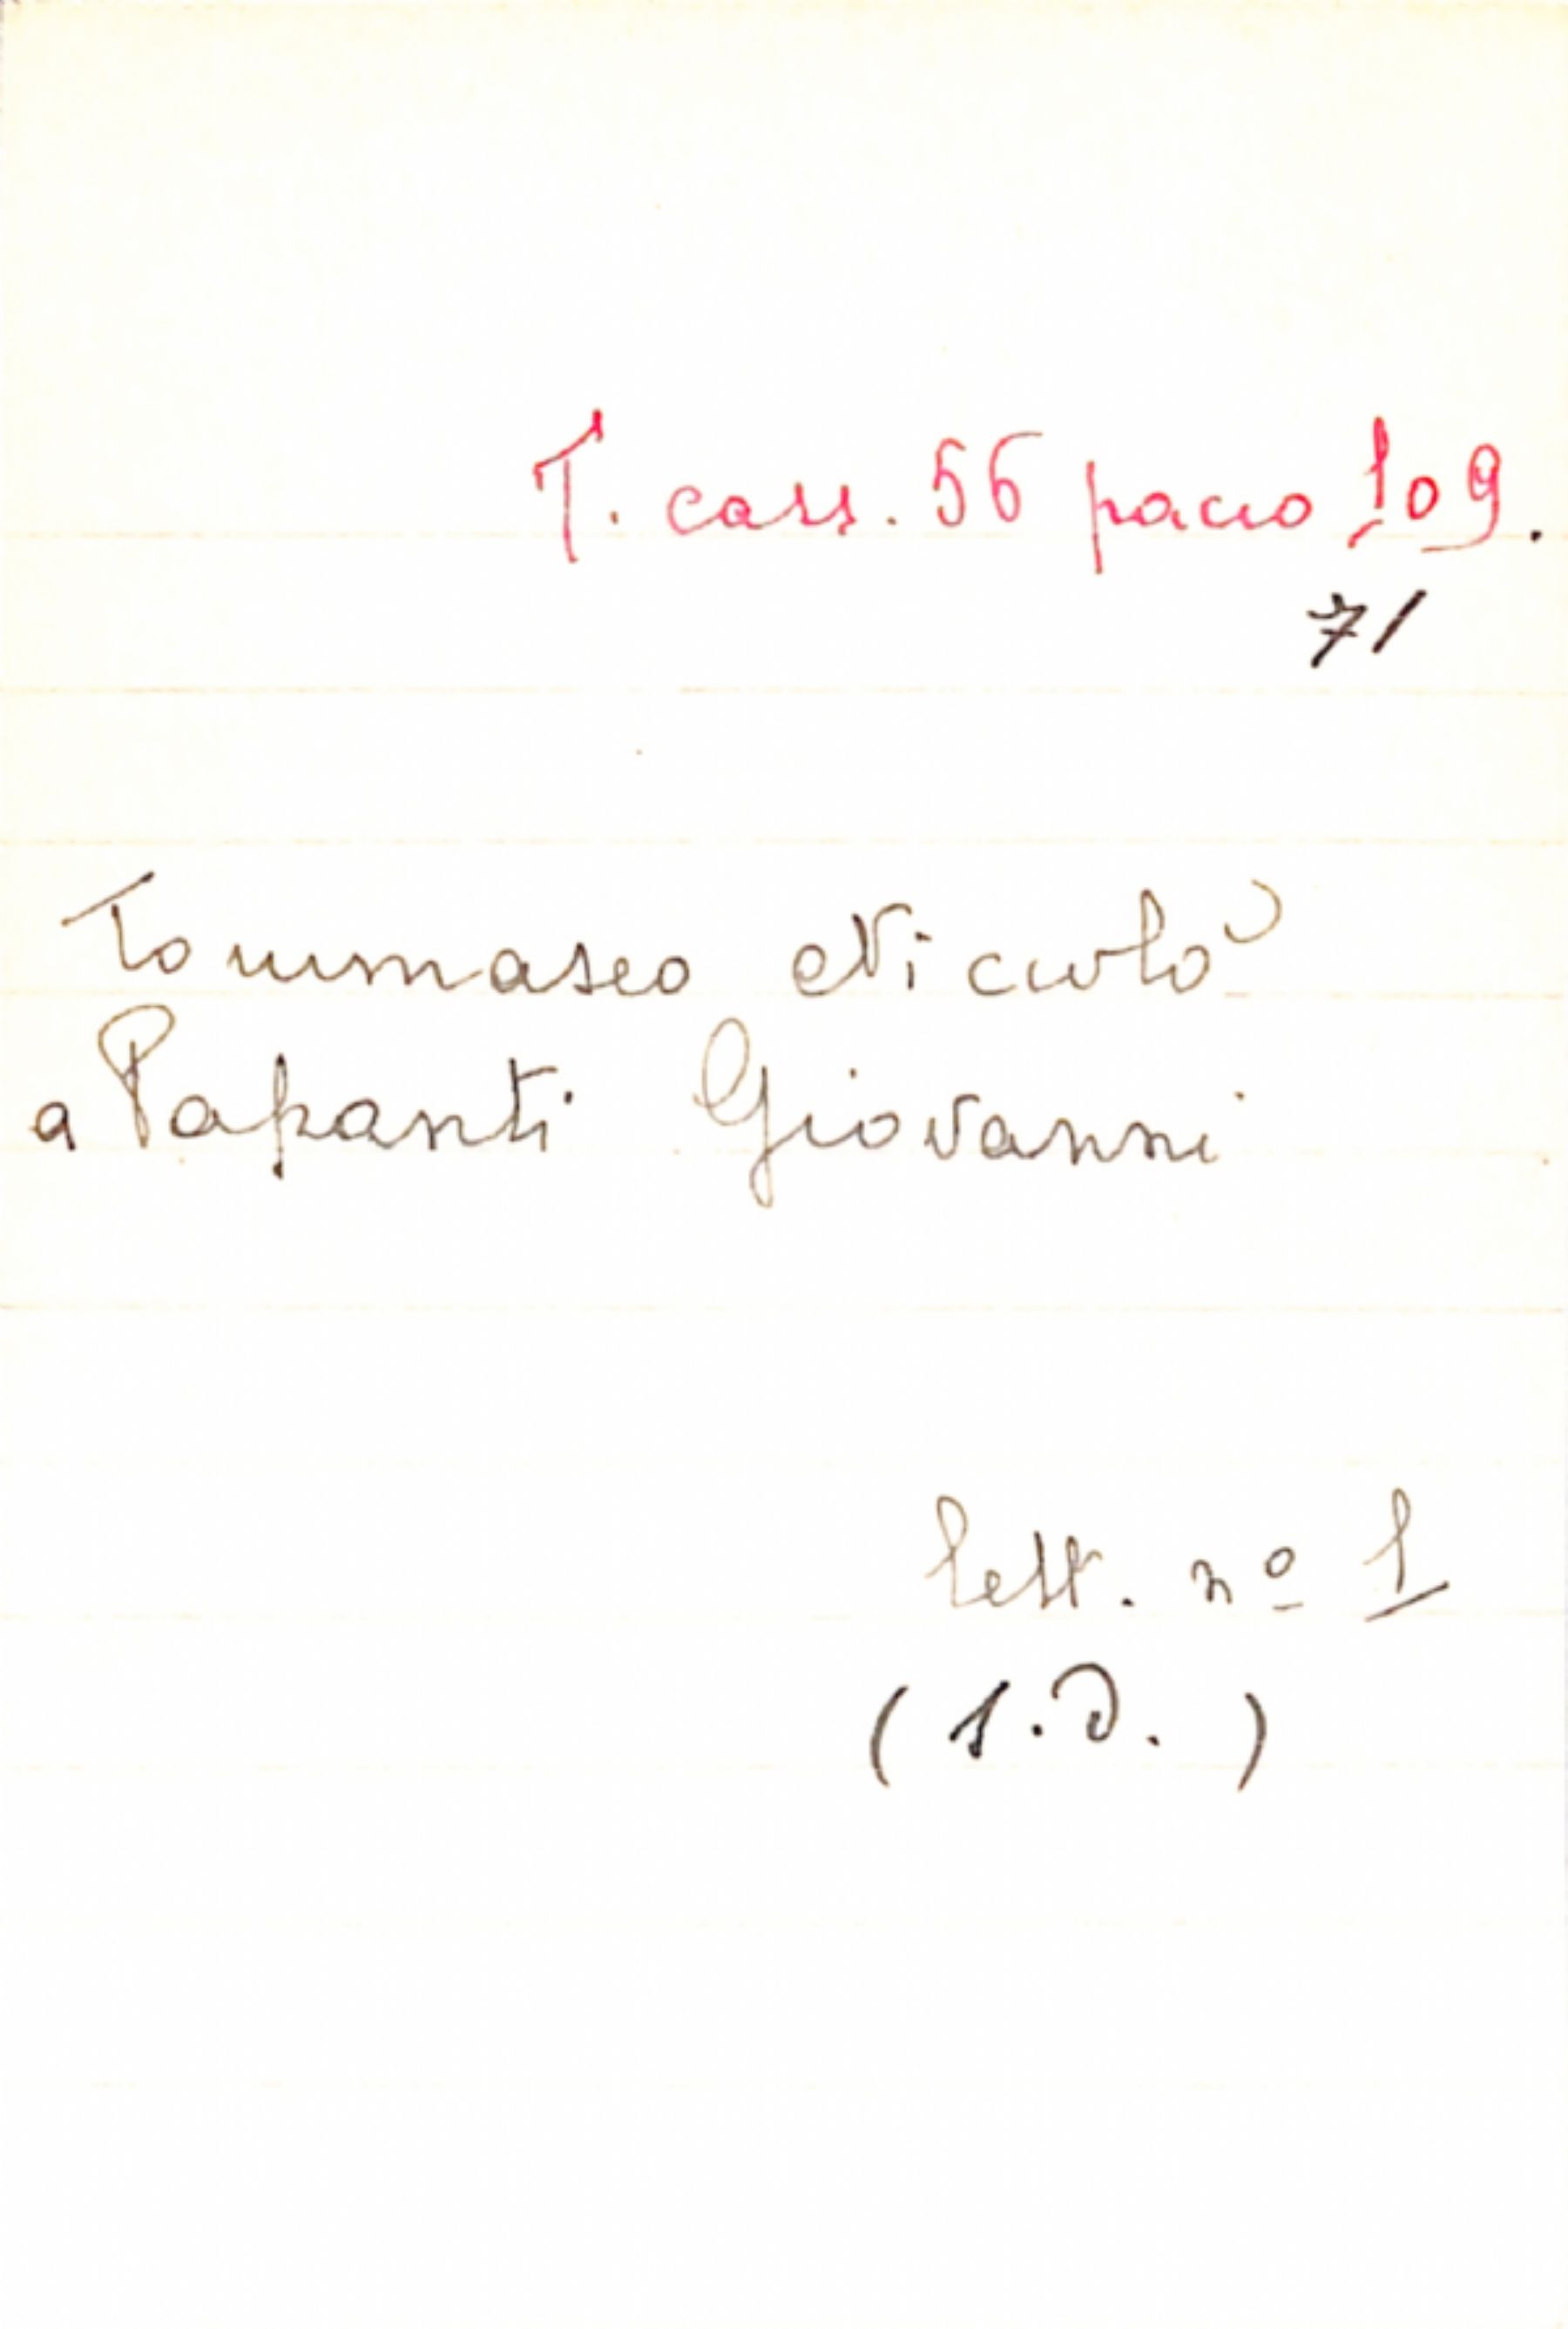 T. cass. 56 pacco 109.
71
Tommaseo Niccolò
a Papanti Giovanni
lett. nº 1
(s.d.)